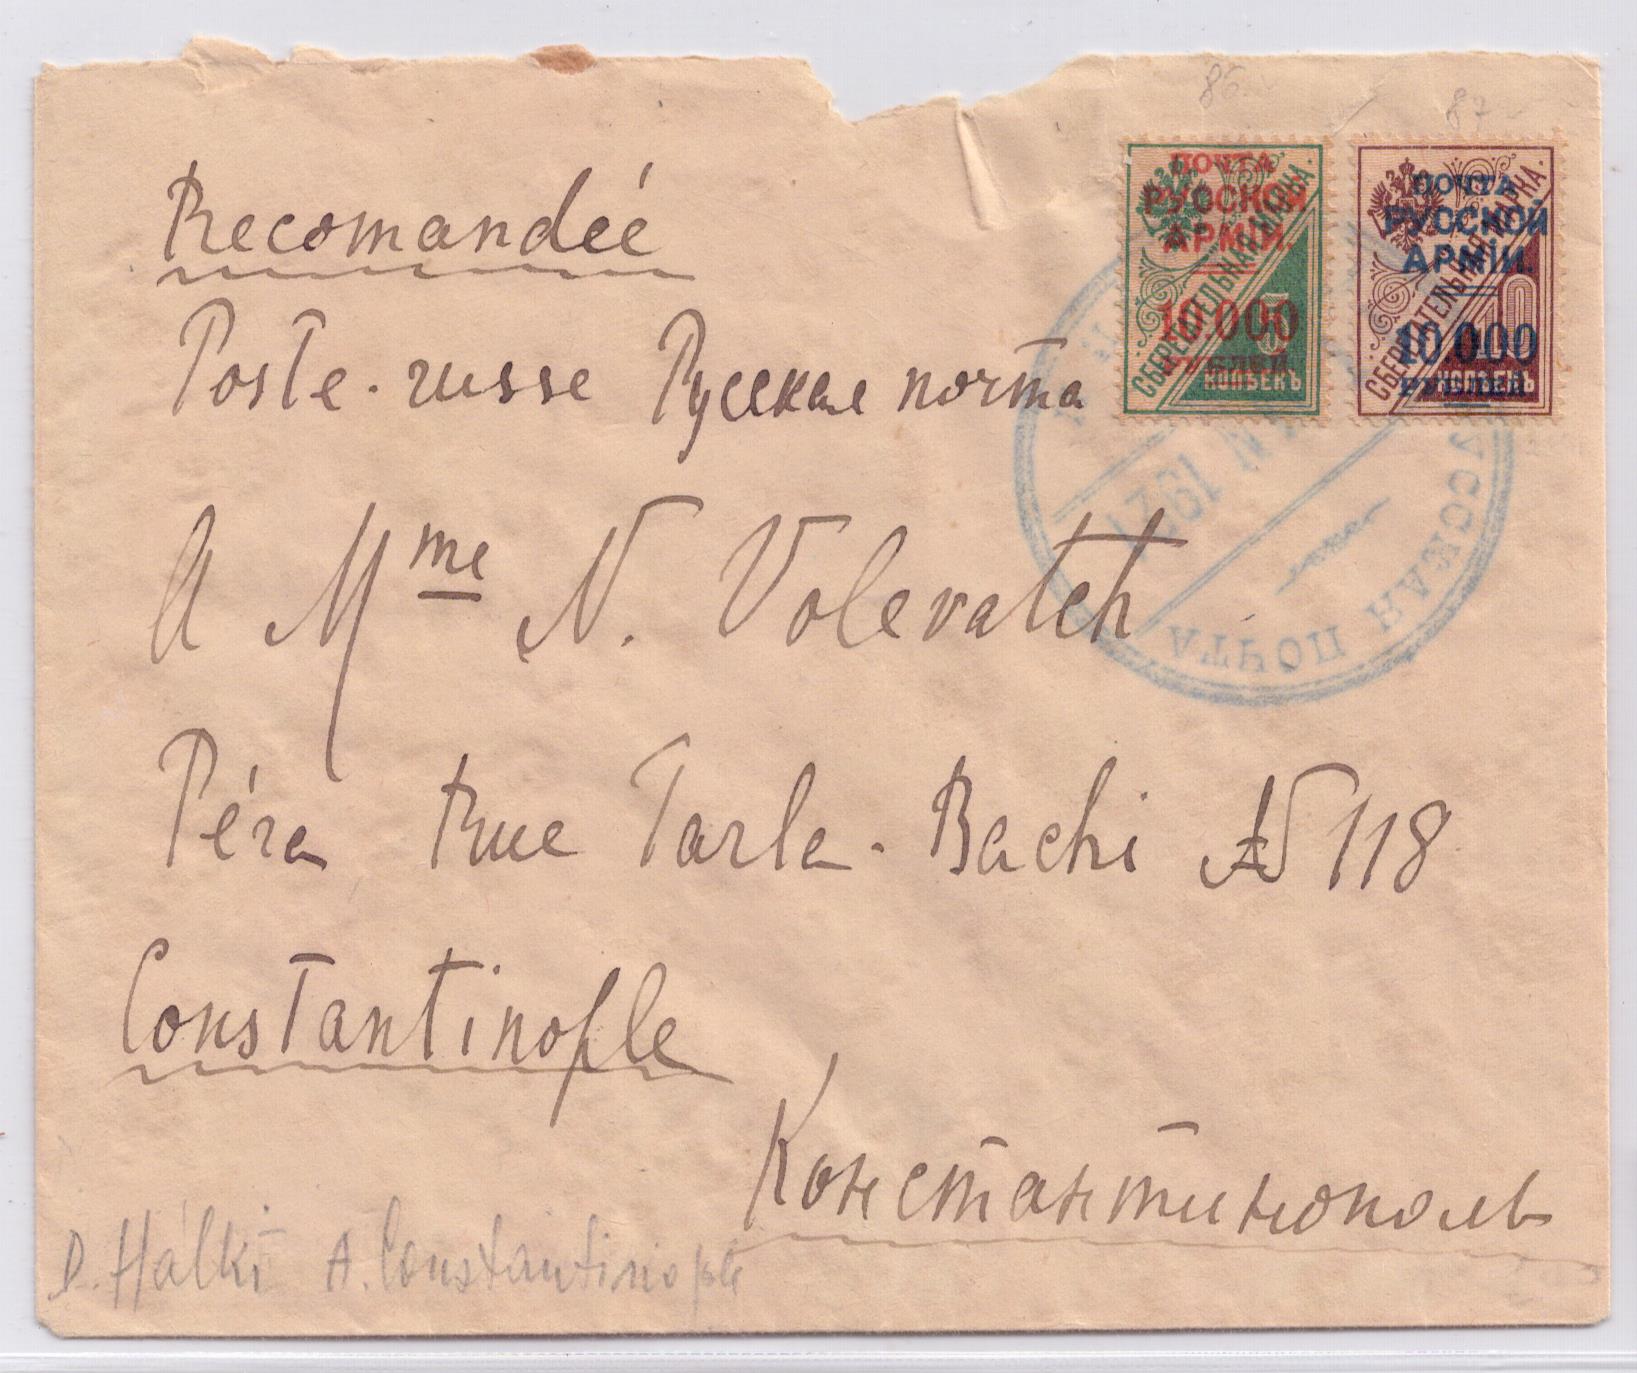 86
87
Recomandéé
Poste-russe Русская почта
ПОЧТА
РУССКОЙ
АРМІИ.
10.000
РУБЛЕЙ
СБЕРЕГАТЕЛЬНАЯ МАРКА.
5
КОПѢЕКЪ
ПОЧТА
РУССКОЙ
АРМІИ.
10.000
РУБЛЕЙ
СБЕРЕГАТЕЛЬНАЯ МАРКА.
10
КОПѢЕКЪ
РУССКАЯ ПОЧТА
1921
A Mme N. Volevatch
Péra Rue Tarla-Bachi N 118
Constantinople
Константинополь
D. Halki A. Constantinople